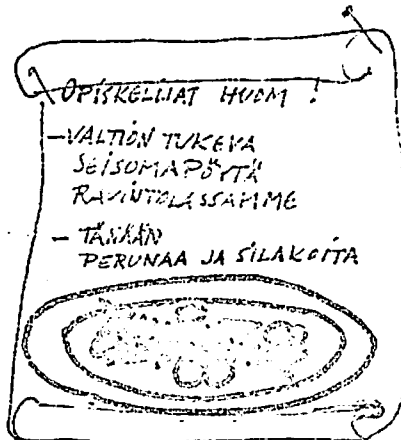 OPISKELIJAT HUOM !
-VALTION TUKEVA
SEISOMAPÖYTÄ
RAVINTOLASSAMME
- TÄNÄÄN
PERUNAA JA SILAKOITA